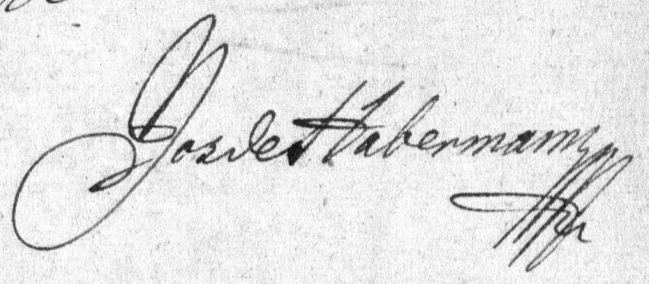 Jos de Habermann